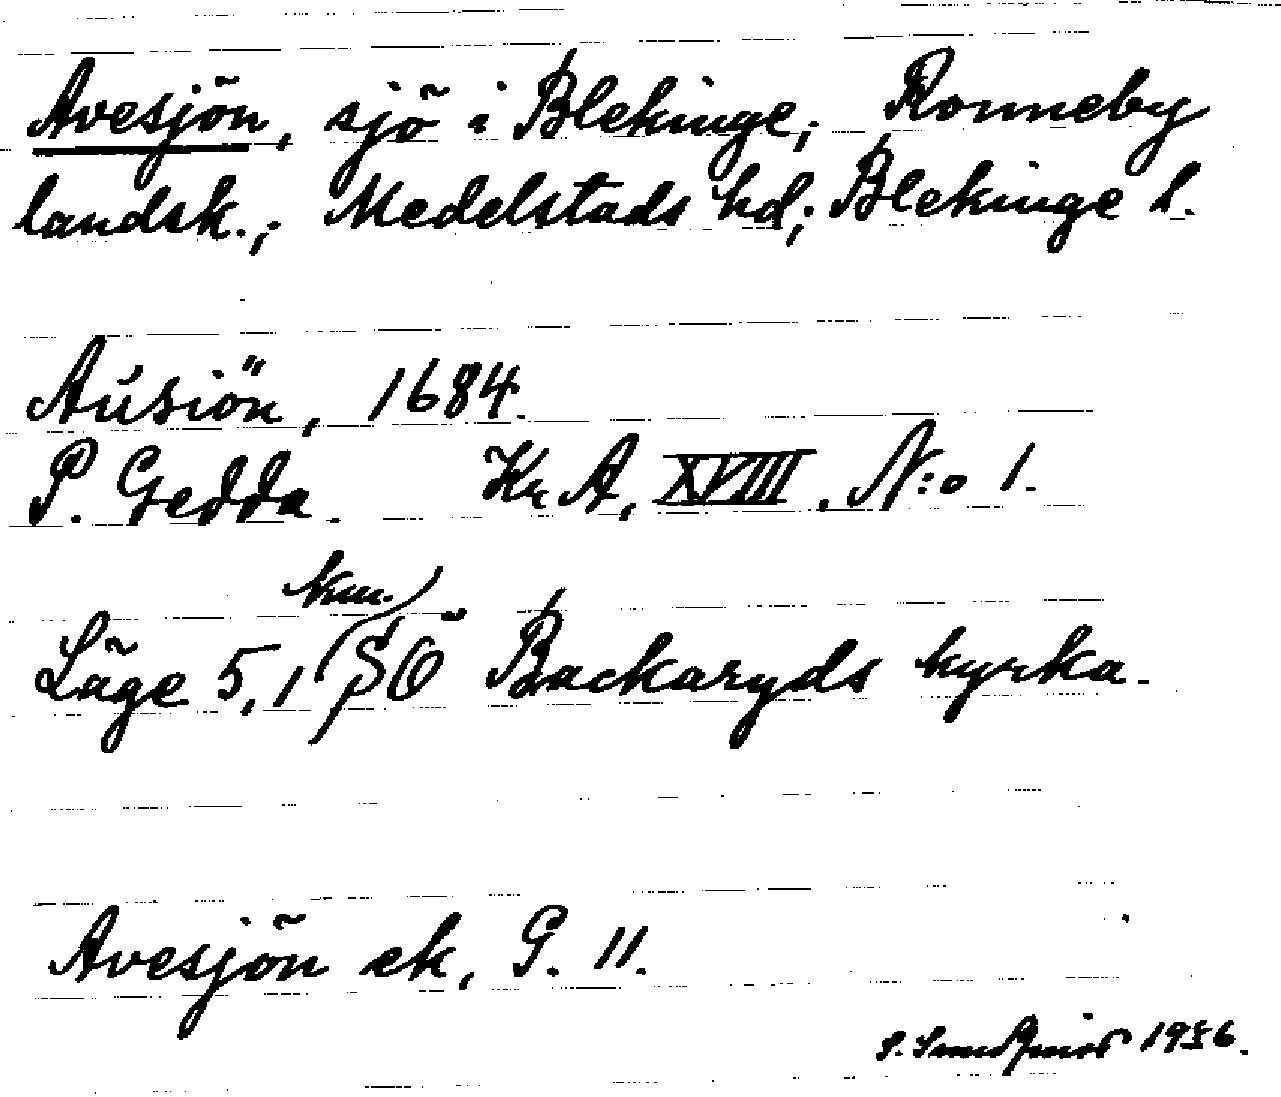 Avesjön, sjö i Blekinge; Ronneby
landsk.; Medelstads hd; Blekinge l.
Aúsiön, 1684.
P. Gedda. Kr A, XVIII. N:o 1.
Läge 5,1 km. SÖ Backaryds kyrka.
Avesjön ek, G. 11.
S. 1956.